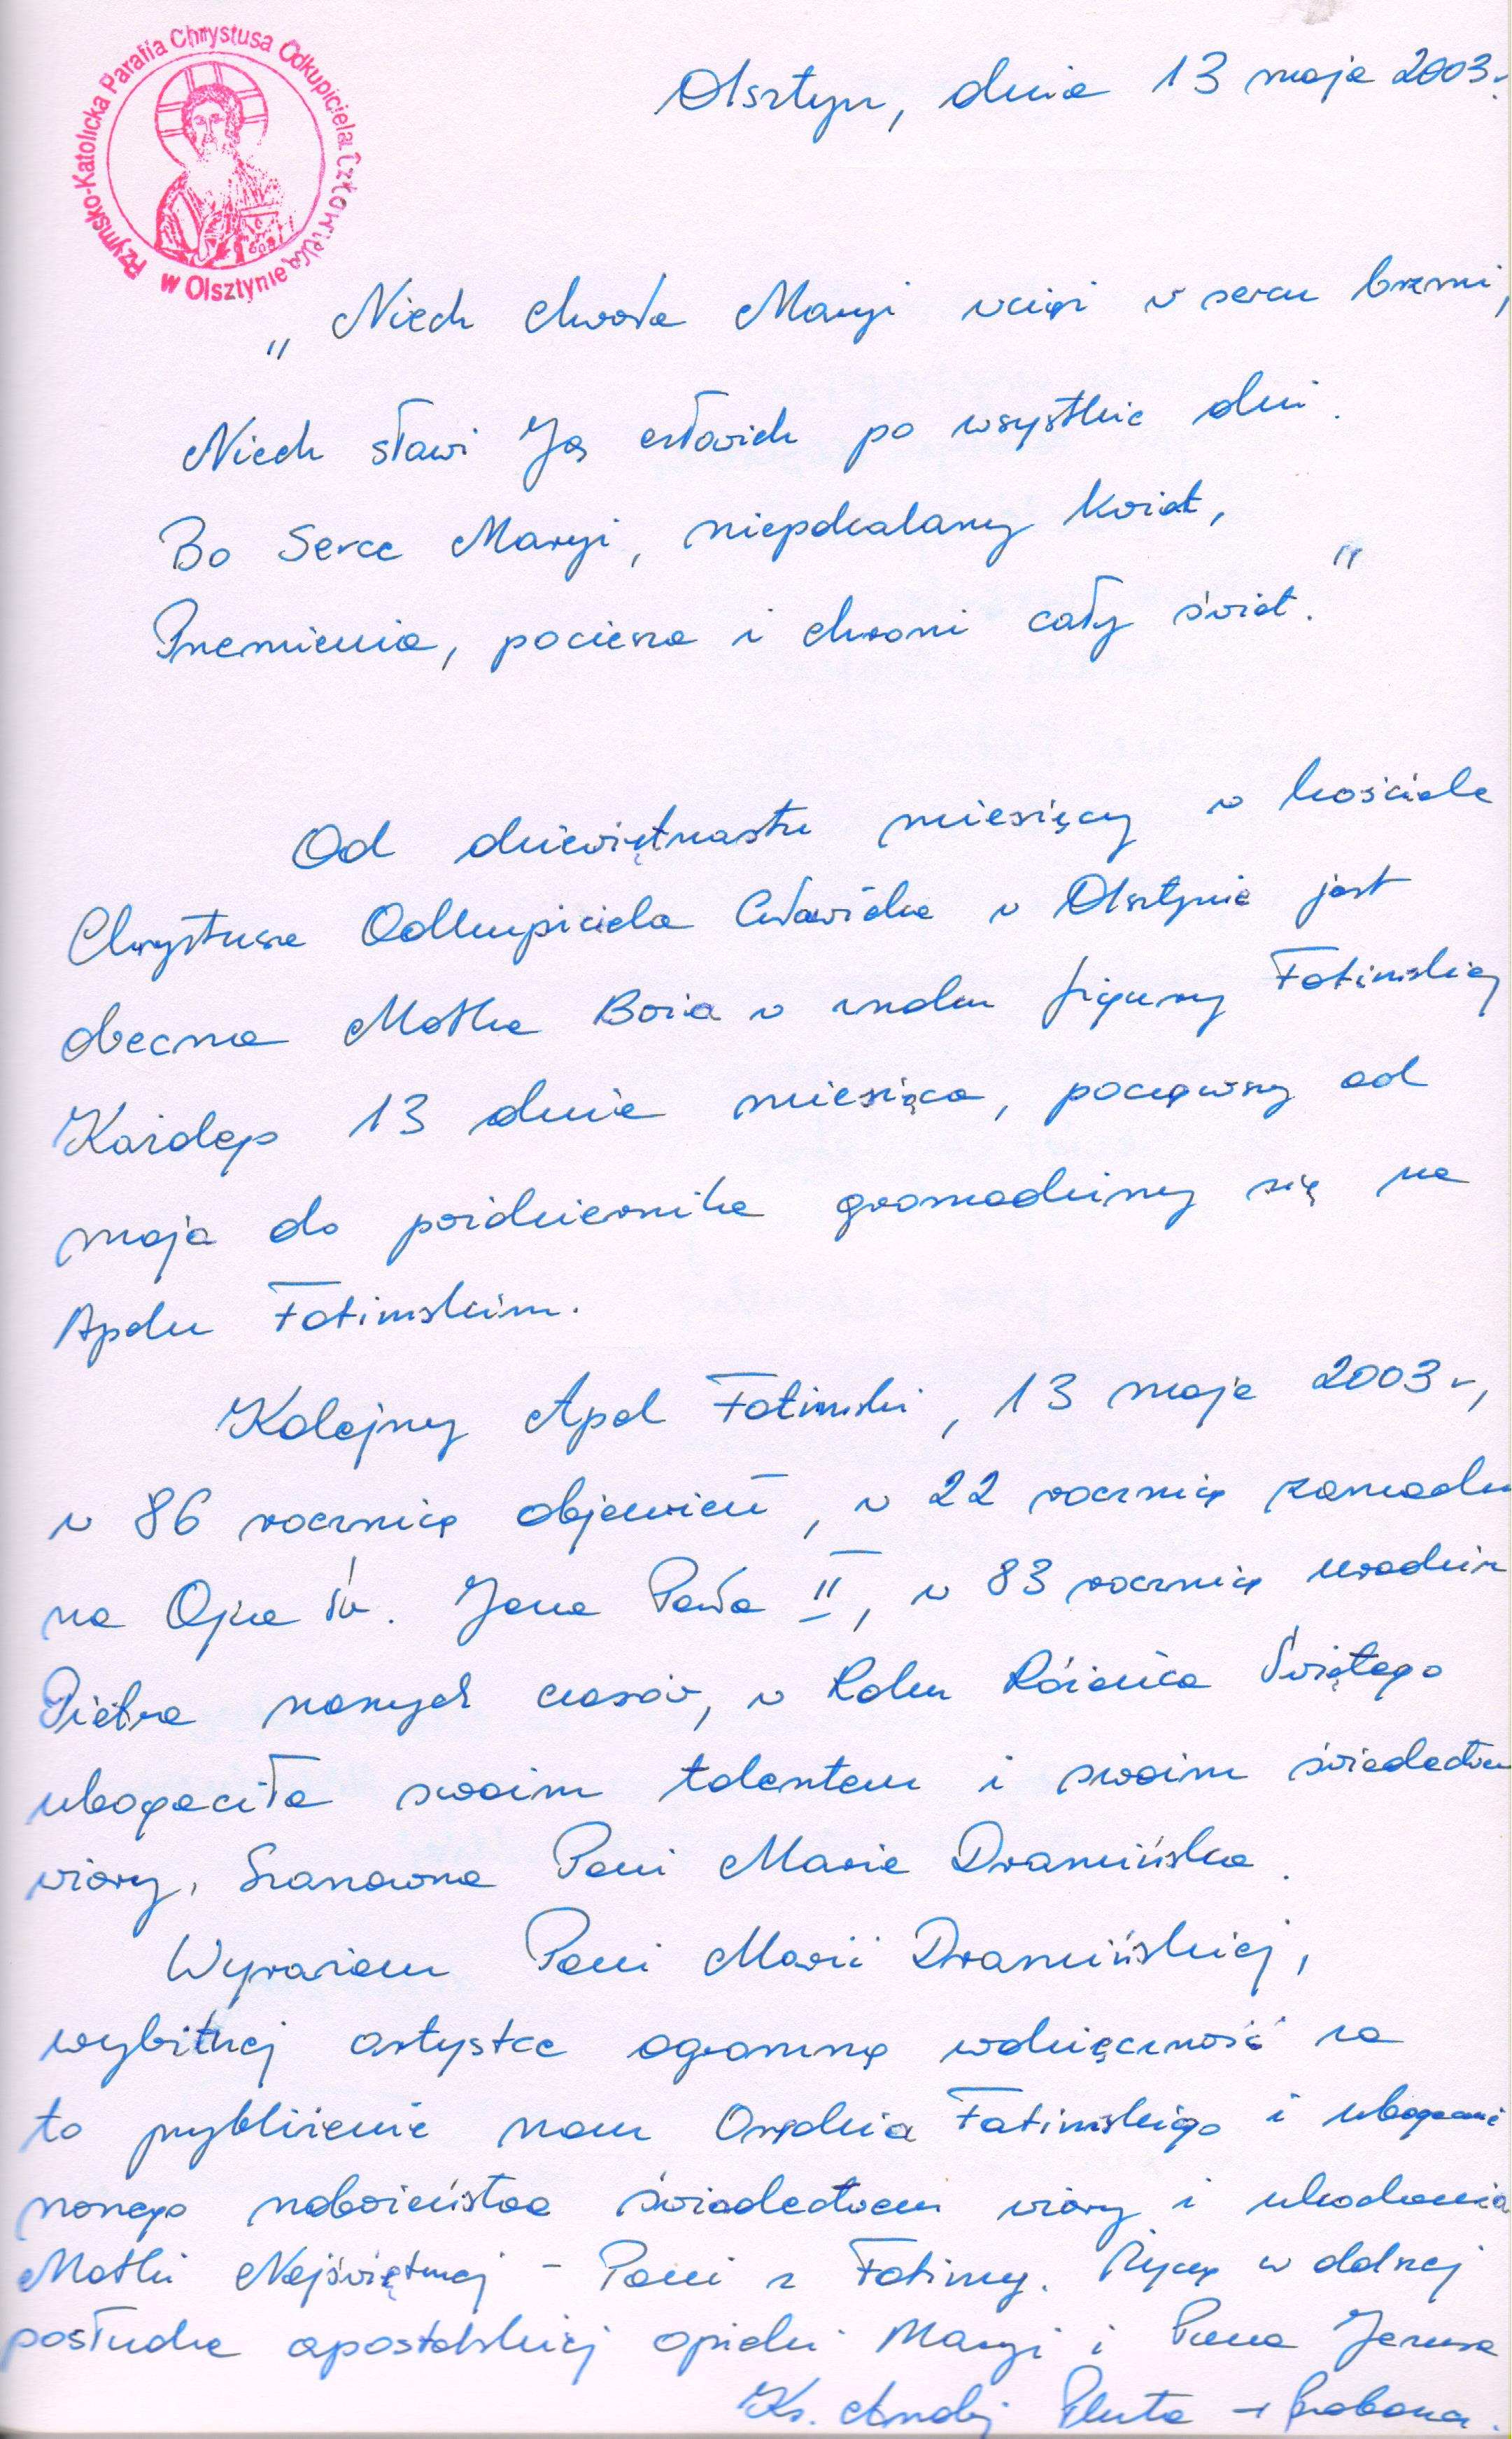 Rzymsko-Katolicka Parafia Chrystusa Odkupiciela Człowieka
w Olsztynie
Olsztyn, dnia 13 maja 2003r.
„Niech chwała Maryi wciąż w sercu brzmi,
Niech sławi Ją człowiek po wszystkie dni.
Bo Serce Maryi, niepokalany kwiat,
Przemienia, pociesza i chroni cały świat."
Od dziewiętnastu miesięcy w kościele
Chrystusa Odkupiciela Człowieka w Olsztynie jest
obecna Matka Boża w znaku figury Fatimskiej
Każdego 13 dnia miesiąca, począwszy od
maja do października gromadzimy się na
Apelu Fatimskim.
Kolejny Apel Fatimski, 13 maja 2003r,
w 86 rocznicę objawień, w 22 rocznicę zamachu
na Ojca Św. Jana Pawła II, w 83 rocznicę urodzin
Piotra naszych czasów, w Roku Różańca Świętego
ubogaciła swoim talentem i swoim świadectwem
wiary, Szanowna Pani Maria Dramińska.
Wyrażam Pani Marii Dramińskiej,
wybitnej artystce ogromną wdzięczność za
to przybliżenie nam Orędzia Fatimskiego i ubogacenie
naszego nabożeństwa świadectwem wiary i ukochania
Matki Najświętszej - Pani z Fatimy. Życzę w dalszej
posłudze apostolskiej opieki Maryi i Pana Jezusa
Ks. Andrzej Pluta - Proboszcz.